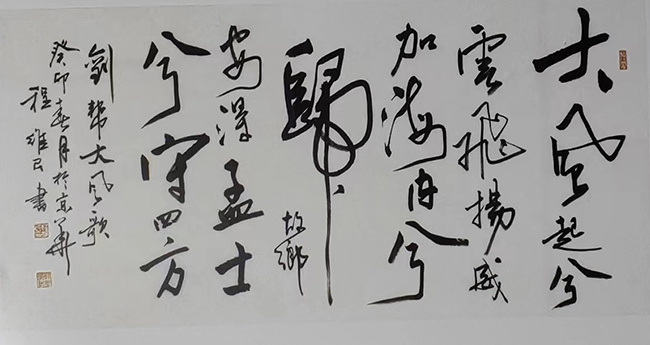 大风起兮
雲飛揚威
加海内兮
歸
故鄉
安得孟士
兮守四方
劉帮大风歌
癸卯春月於京華
程維民書